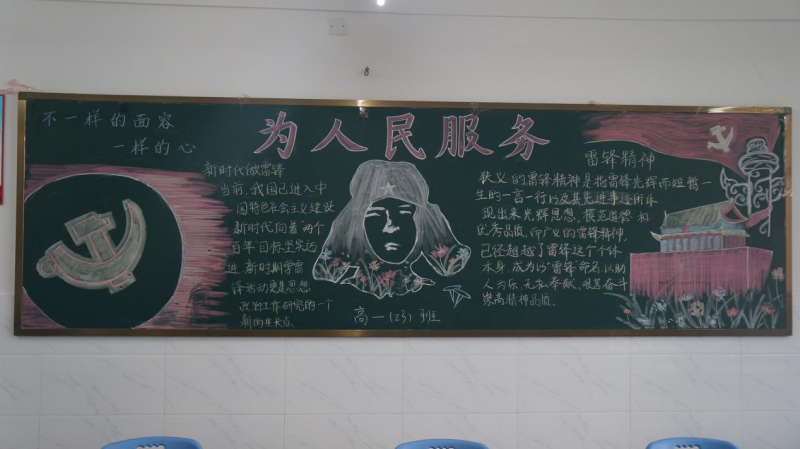 不一样的面容
一样的心
为人民服务
新时代做雷锋
当前,我国已进入中
国特色社会主义建设
新时代向着"两个
百年"目标坚实迈
进,新时期学雷
锋活动更是思想
政治工作研究的一个
新的生长点
高一(23)班
雷锋精神
狭义的雷锋精神是指雷锋先辉而短暂一
生的一言一行以及其先进事迹所体
现出来光辉思想,模范道德和
优秀品质,而广义的雷锋精神,
已经超越了雷锋这个个体
本身,成为以"雷锋"命名以助
人为乐,无私奉献,艰苦奋斗
崇高精神品质。